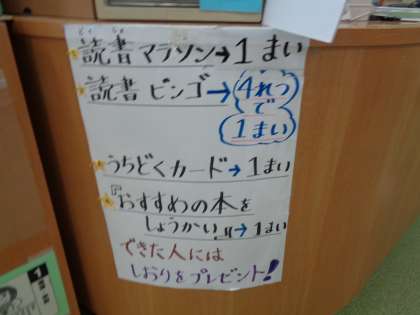 どくしょ
読書マラソン→1まい
読書ビンゴ→4れつ
で
1まい
うちどくカード→1まい
『おすすめの本を
しょうかい』→1まい
できた人には
しおりをプレゼント!